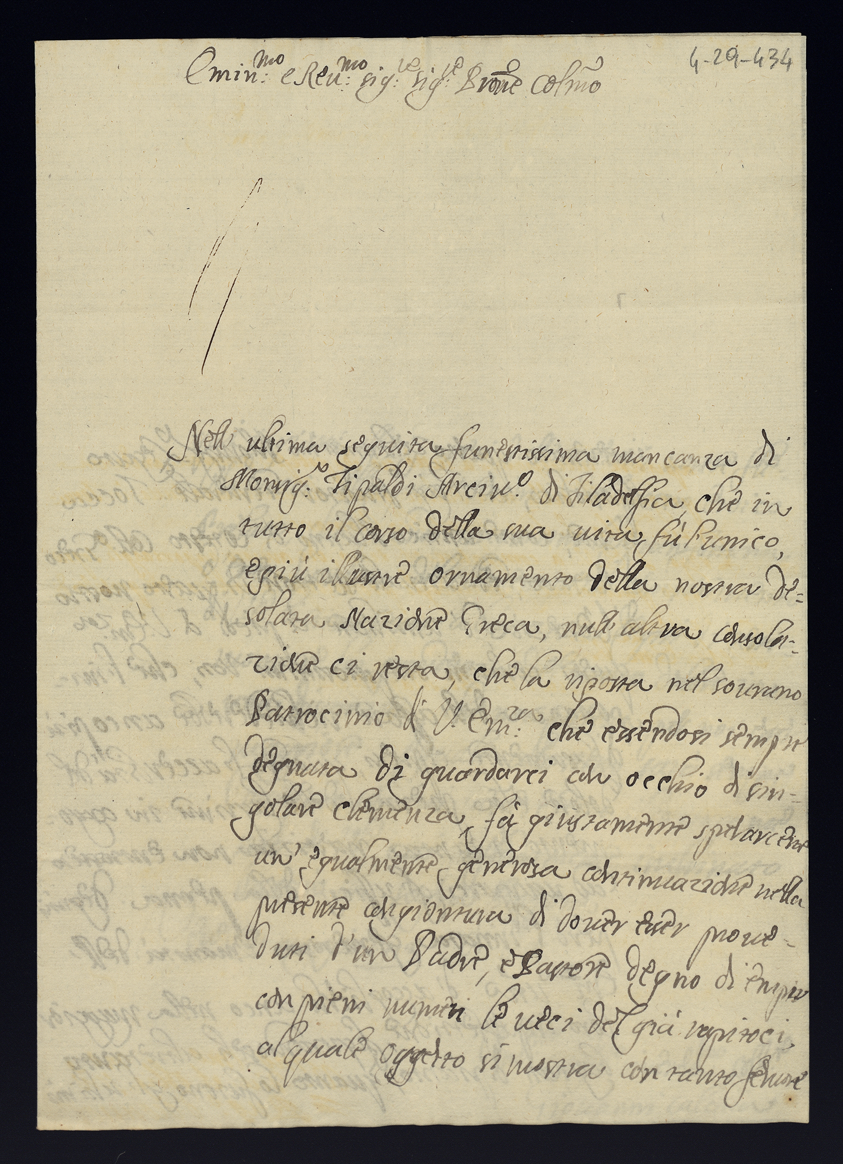 4-29-434
Emin:mo e Rev:mo sig:re sig:re Prone Colmo
Nell ultima seguita funestissima mancanza di
Monsig:r Tipaldi Arciv:o di Filadelfia, che in
tutto il corso della sua vita fù l'unico,
e più illustre ornamento della nostra de=
solata Nazione Greca, null altra consola=
zione ci resta, che la riposta nel sovrano
Patrocinio di V. Em:za che essendosi sempre
degnata di guardarci con occhio di sin=
golare clemenza, fà giustamente sperarcene
un' egualmente generosa continuazione nella
presente congiontura di dover esser prove=
duti d'un Padre, e Pastore degno di empir
con pieni numeri le veci del già rapitoci,
al quale oggetto si mostra con tanto fervore